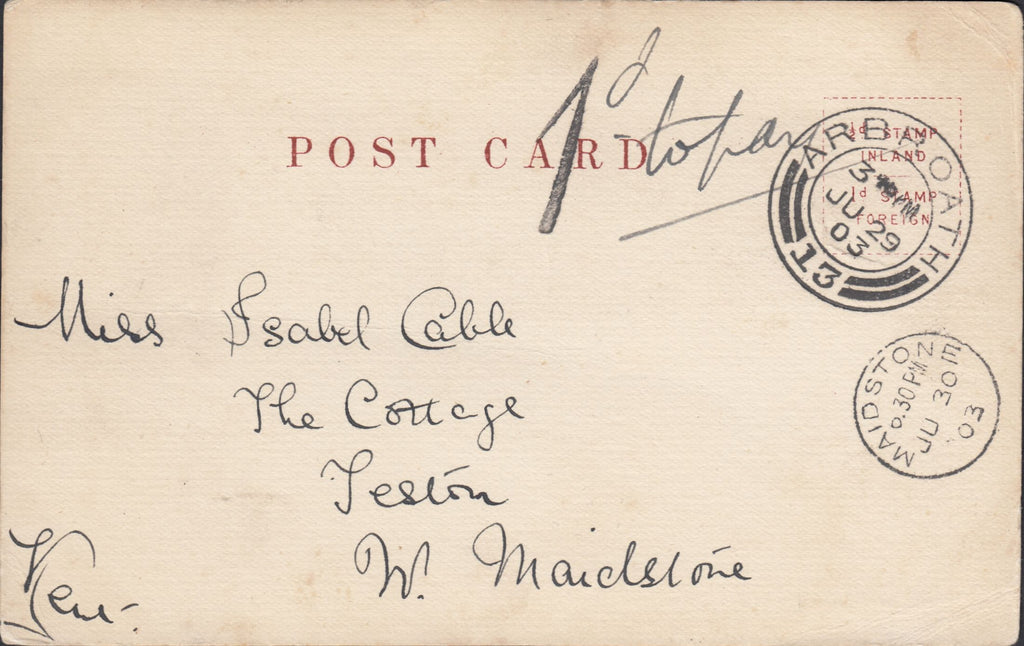 1d to pay
POST CARD
½d STAMP
INLAND
1d STAMP
FOREIGN
ARBROATH
3 PM
JU 29
03
13
MAIDSTONE
6.30PM
JU 30
03
Miss Isabel Cable
The Cottage
Teston
W. Maidstone
Kent.